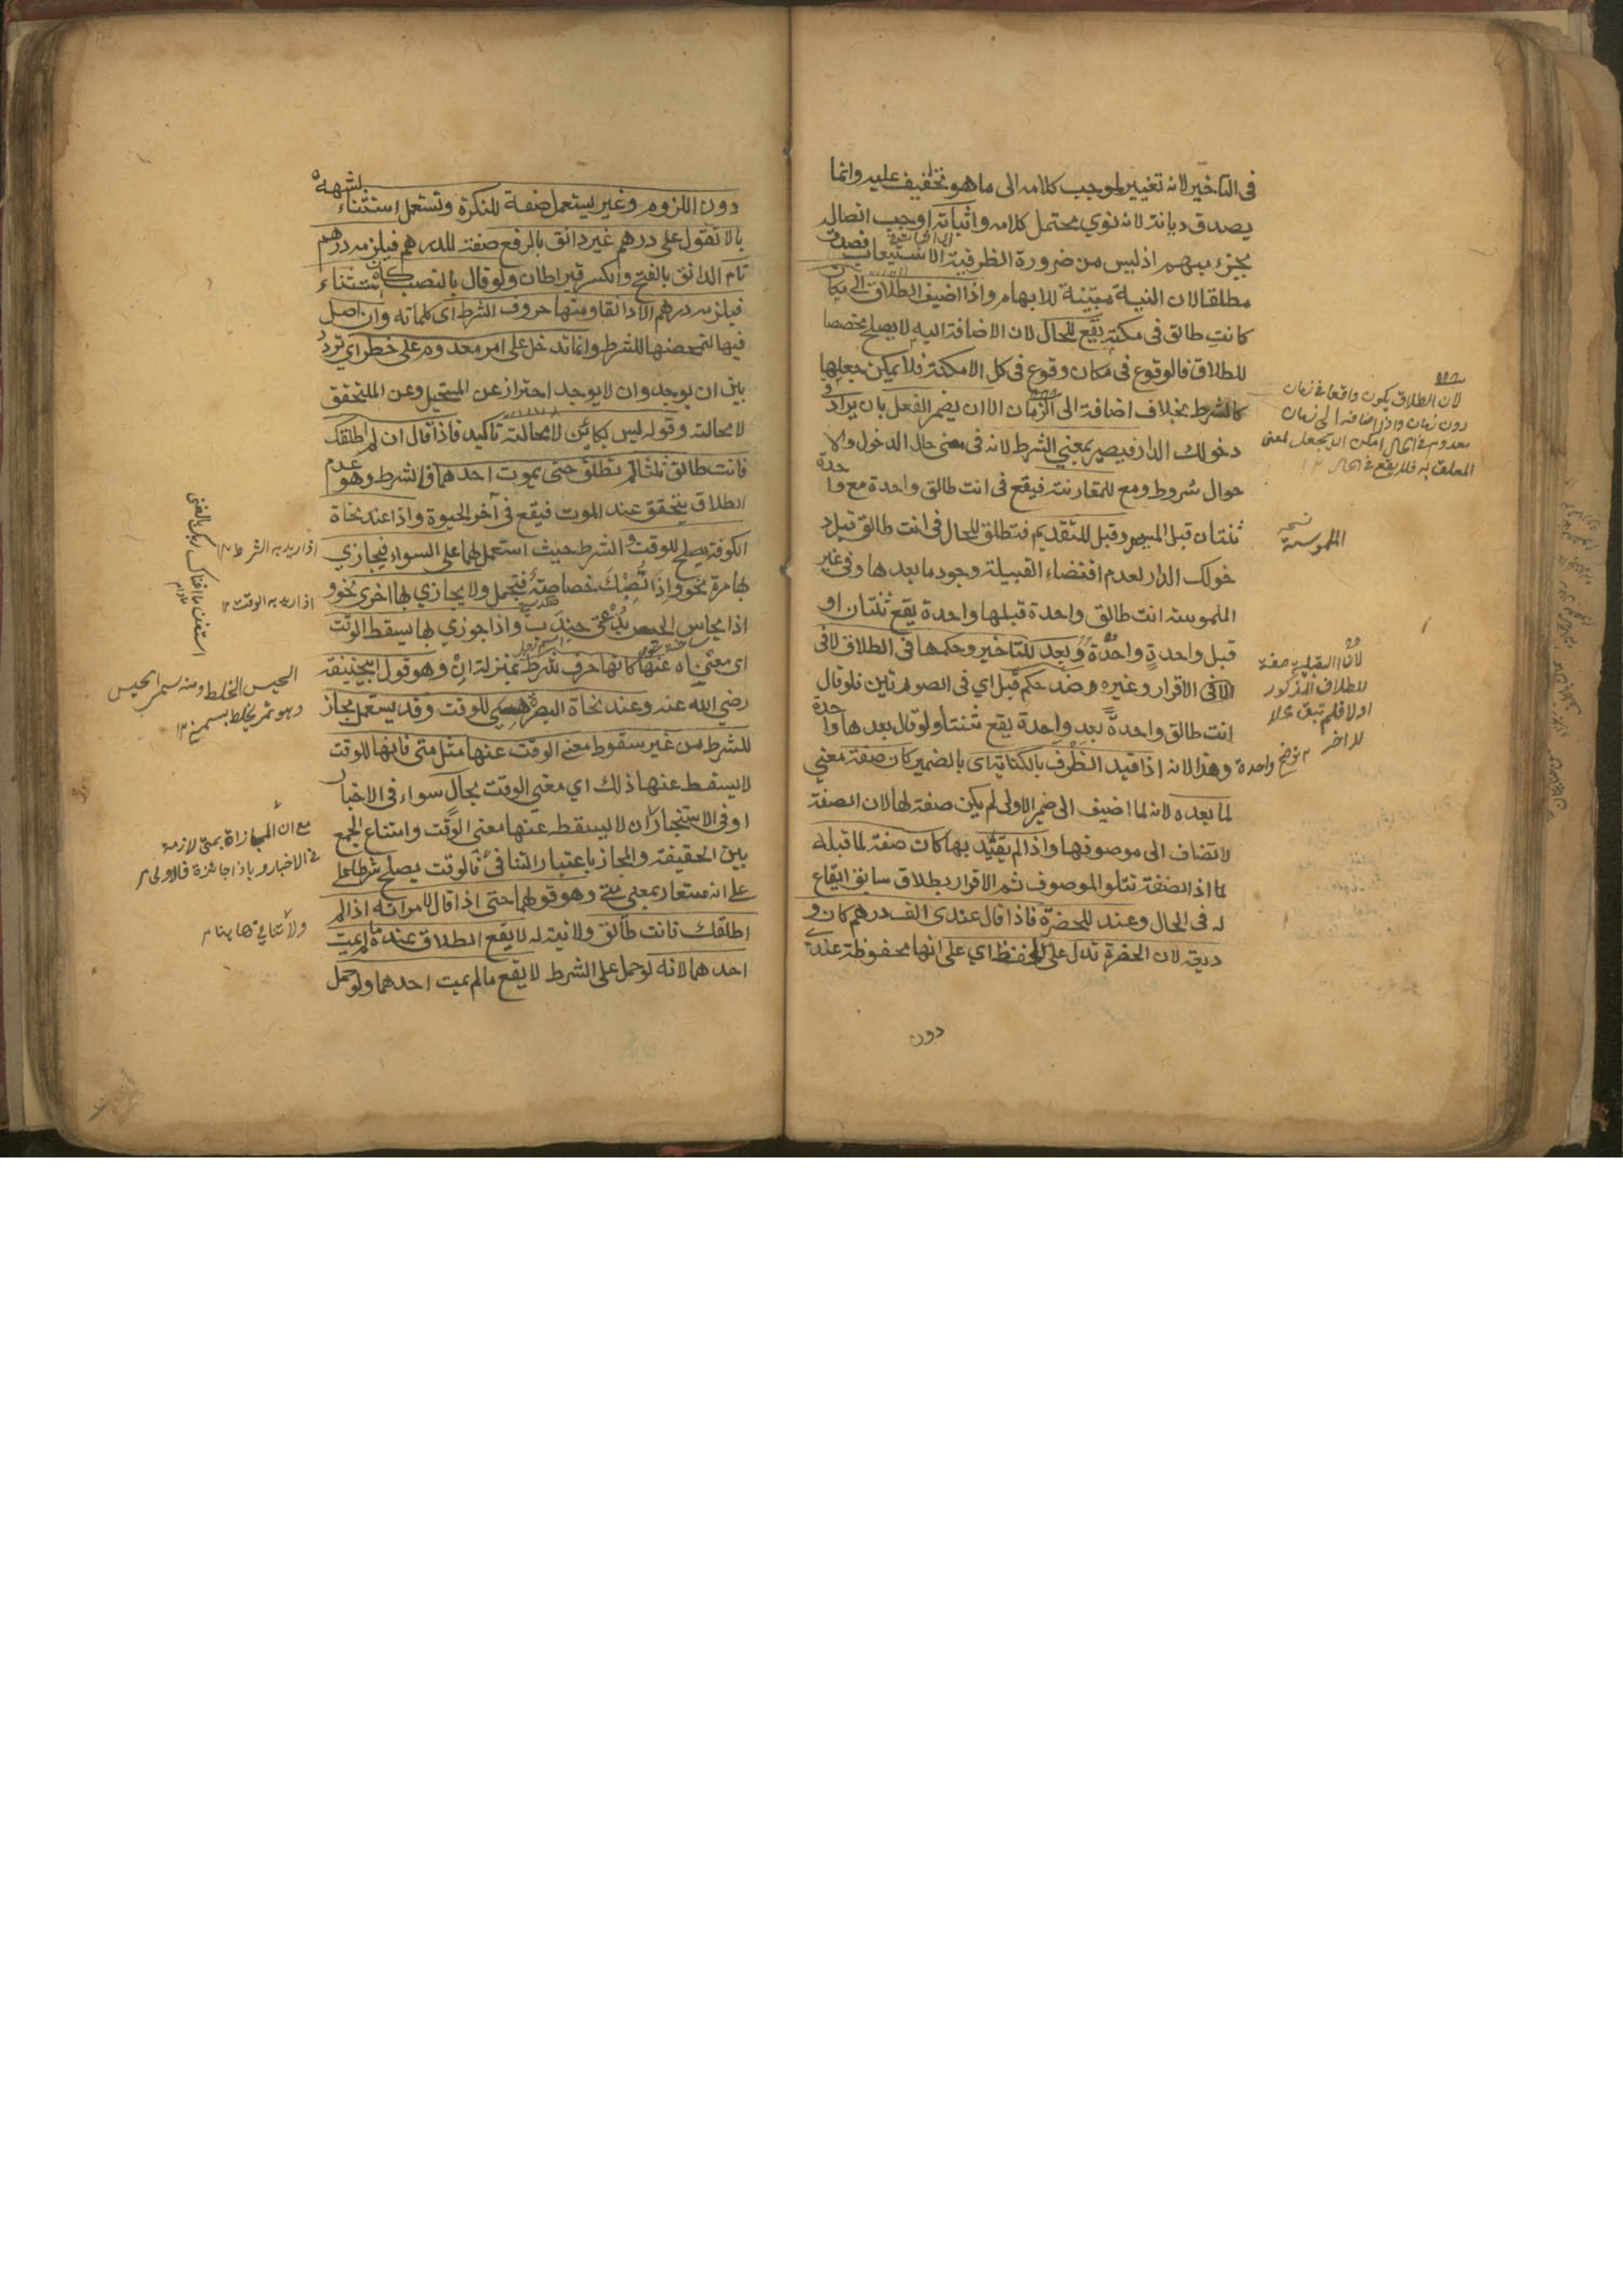 في التاخير لانه تغيير لموجب كلامه الى ما هو تخفيف عليه وانما
يصدق ديانة لانه نوي محتمل كلامه واثباته اوجب اتصال
بجزء مبهم اذ ليس من ضرورة الظرفية الاستيعاب فصدق
مطلقا لان النية مبينة للابهام واذا اضيف الطلاق الى مكان
كانت طالق في مكة يقع للحال لان الاضافة اليه لا يصلح مخصصا
للطلاق فالوقوع في مكان وقوع في كل الامكنة فلا يمكن جعلها
كالشرط بخلاف اضافة الى الزمان الا ان يضمر الفعل بان يراد في
دخولك الدار فيصير بمعني الشرط لانه في معنى حال الدخول والا
حوال شروط ومع للمقارنة فيقع في انت طالق واحدة مع واحدة
ثنتان قبل المسيس وقبل للتقديم فتطلق للحال في انت طالق قبل د
خولك الدار لعدم اقتضاء القبيلة وجود ما بعدها وفي غير
الملموسة انت طالق واحدة قبلها واحدة يقع ثنتان او
قبل واحدة واحدة وبعد للتاخير وحكمها في الطلاق لا في
الا في الاقرار وغيره ضد حكم قبل اي في الصورتين فلو قال
انت طالق واحدة بعد واحدة يقع ثنتا ولو قال بعدها واحدة
واحدة وهذا لانه اذا قيد الظرف بالكناية اى بالضمير كان صفة معني
لما بعده لانه لما اضيف الى ضمير الاولى لم يكن صفة لها لان الصفة
لا تضاف الى موصوفها واذا لم يقيد بها كان صفة لما قبله
لما اذ الصفة تتلو الموصوف ثم الاقرار بطلاق سابق ايقاع
له في الحال وعند للحضرة فاذا قال عندى الف درهم كان و
ديعة لان الحضرة تدل على الحفظ اي على انها محفوظة عنده
دون
لان الطلاق يكون واقعا في زمان
دون زمان واذا اضافه الى زمان
معدوم في الحال امكن ان يجعل لمعنى
المعلق به فلا يقع في الحال ١٢
نسخه
الملموسة
لان القبلية صفة
للطلاق المذكور
اولا فلم تبق محلا
للاخر
توضح
دون اللزوم وغير يستعمل صفة للنكرة وتستعمل استثناء لشبهه
بالا تقول علي درهم غير دانق بالرفع صفة للدرهم فيلزمه درهم
تام الدانق بالفتح والكسر قيراطان ولو قال بالنصب كان استثناء
فيلزمه درهم الا دانقا ومنها حروف الشرط اى كلماته وان اصل
فيها لتمحضها للشرط وانما تدخل على امر معدوم على خطر اي تردد
بين ان يوجد وان لا يوجد احتراز عن المستحيل وعن المتحقق
لا محالة وقوله ليس بكائن لا محالة تاكيد فاذا قال ان لم اطلقك
فانت طالق ثلثا لم تطلق حتى يموت احدهما فالشرط وهو عدم
الطلاق يتحقق عند الموت فيقع في آخر الحيوة واذا عند نحاة
الكوفة يصلح للوقت والشرط حيث استعمل لهما على السواء فيجازي
بها مرة نحو واذا تصبك خصاصة فتجمل ولا يجازي بها اخرى نحو و
اذا يحاس الحيس يدعى جندب واذا جوزي بها يسقط الوقت
اى معناه عنها كانها حرف شرط بمنزلة ان وهو قول ابيحنيفة
رضي الله عنه وعند نحاة البصرة هي للوقت وقد يستعمل مجاز
للشرط من غير سقوط معنے الوقت عنها مثل متى فانها للوقت
لا يسقط عنها ذلك اي معنى الوقت بحال سواء في الاخبار
او في الاستخبار ان لا يسقط عنها معنى الوقت وامتناع الجمع
بين الحقيقة والمجاز باعتبار التنافي فالوقت يصلح شرطا على
على انه مستعار بمعني متے وهو قولهما حتى اذا قال لامراته اذا لم
اطلقك فانت طالق ولا نية له لا يقع الطلاق عنده ما لم يمت
احدهما لانه لو حمل على الشرط لا يقع ما لم يمت احدهما ولو حمل
استغن ما اغناك ربك بالغنى
اذا اريد به الشرط ١٢
اذا اريد به الوقت ١٢
الحيس الخلط ومنه سمي الحيس
وهو تمر يخلط بسمن ١٢
مع ان المجازاة بمتى لازمة
في الاخبار وباذا جائزة فالاولى
ولا تنافي ههنا